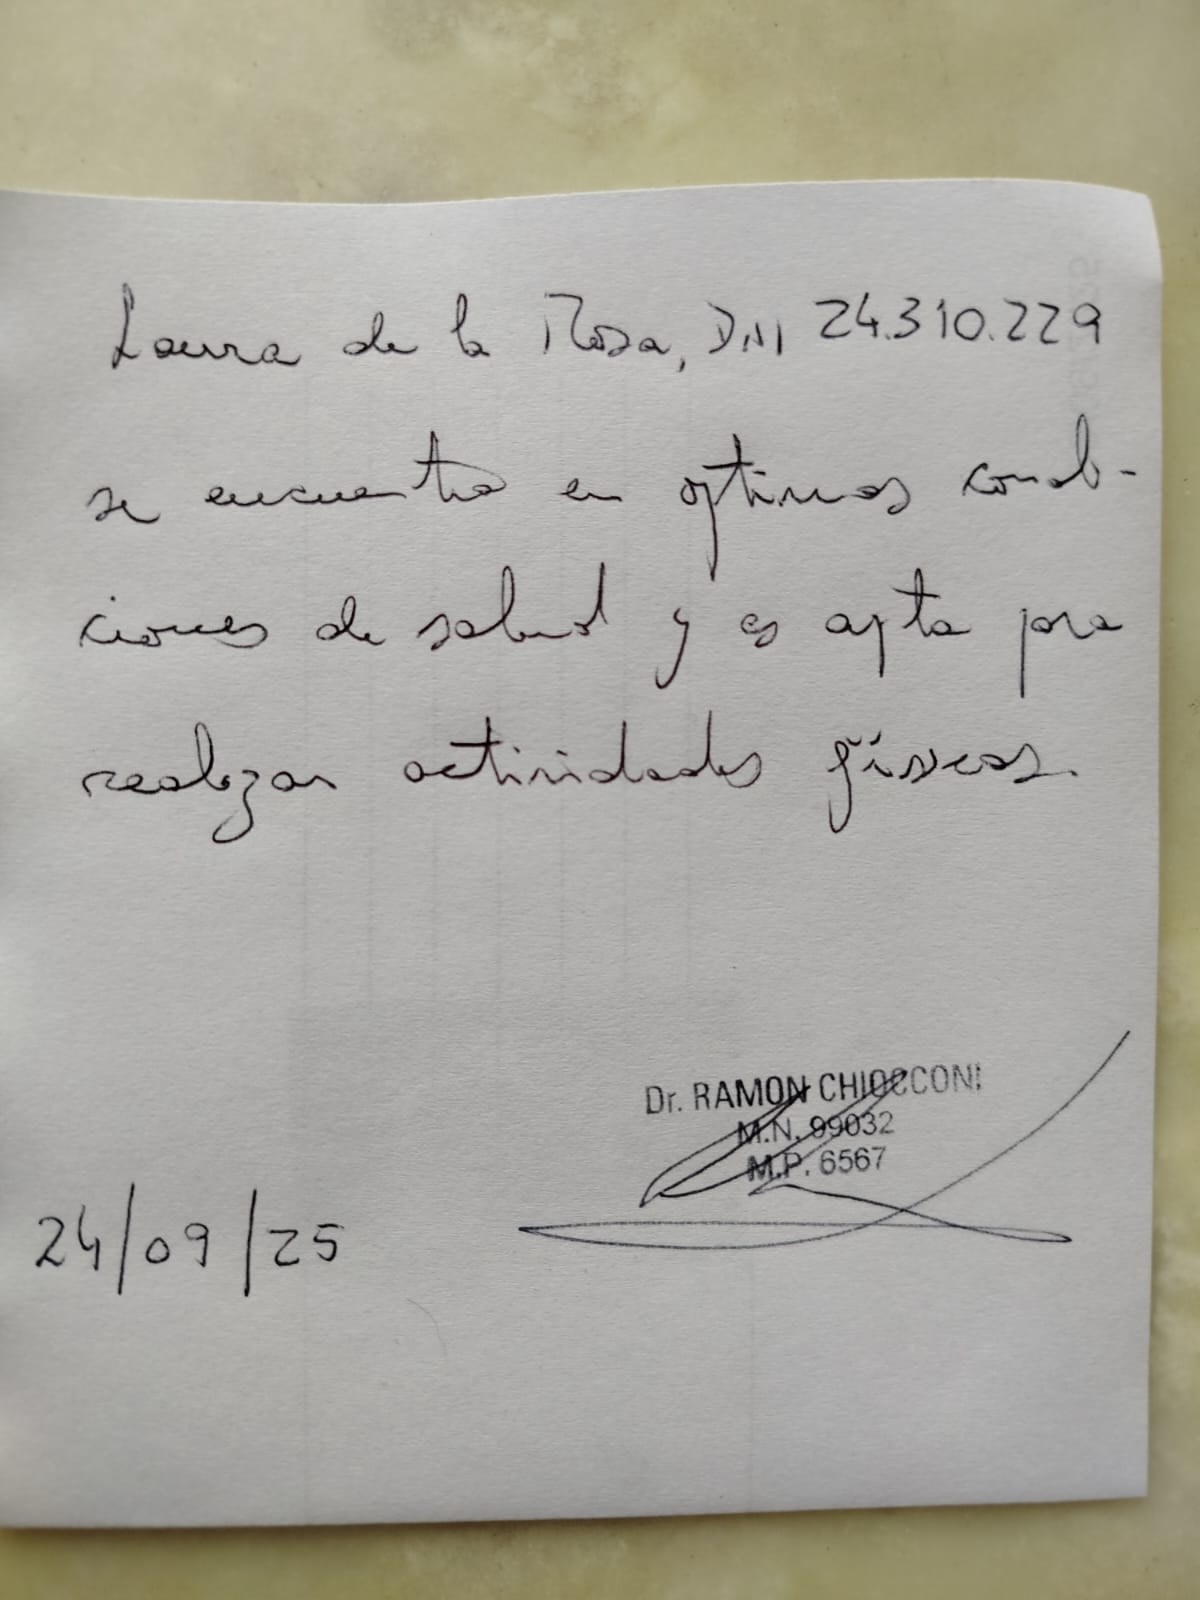 Laura de la Rosa, DNI 24.310.229
se encuentra en optimas condi-
ciones de salud y es apta para
realizar actividades físicas.
Dr. RAMON CHIOCCONI
M.N. 99032
M.P. 6567
24/09/25